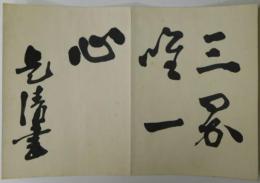 三界
唯一
心
清書